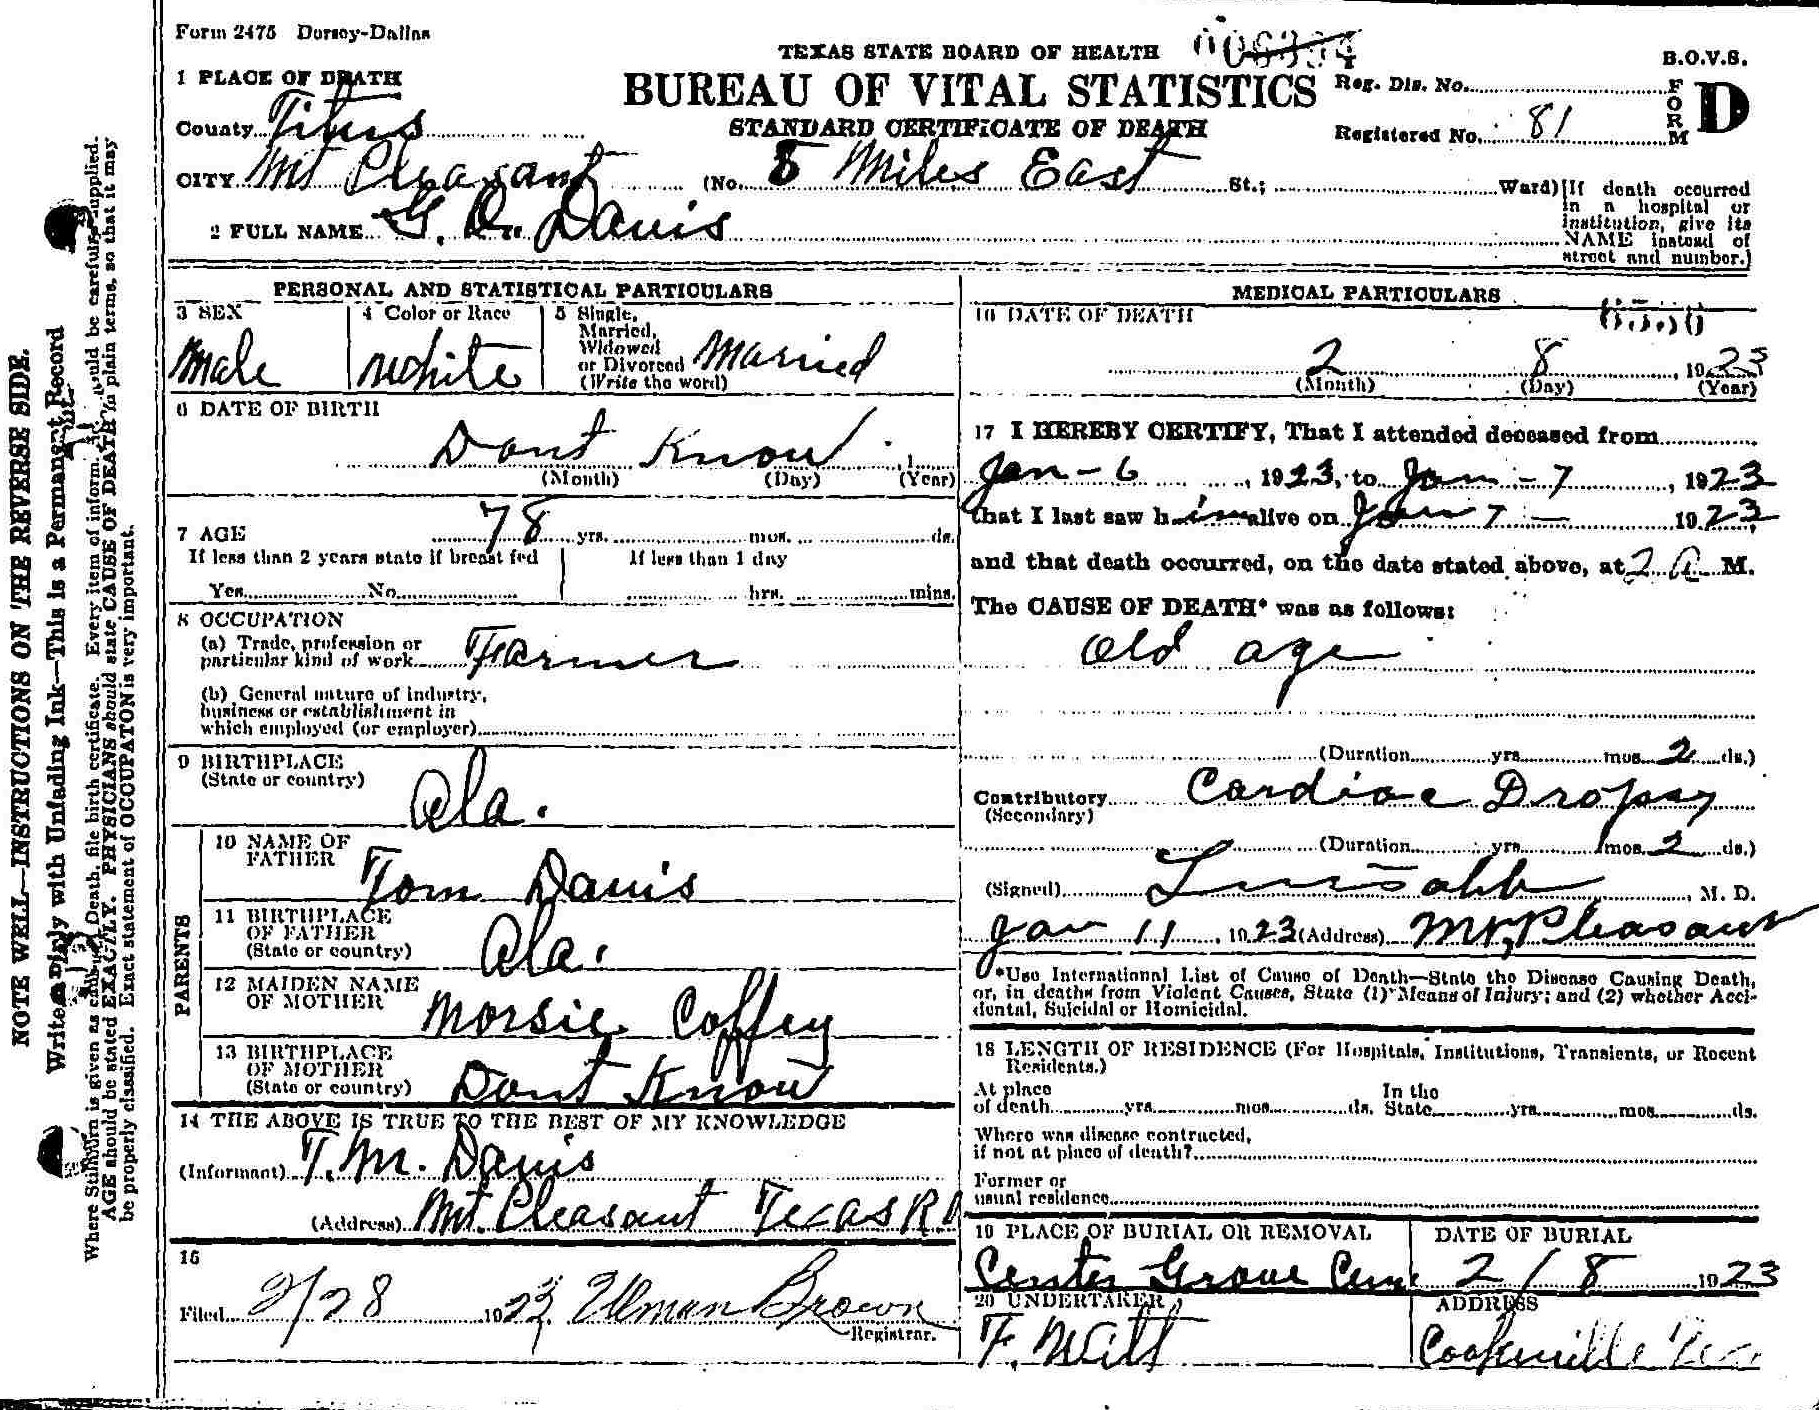 Form 2475 Dorsey-Dallas
TEXAS STATE BOARD OF HEALTH
B.O.V.S.
1 PLACE OF DEATH
BUREAU OF VITAL STATISTICS
Reg. Dis. No.
FORM D
County Titus
STANDARD CERTIFICATE OF DEATH
Registered No. 81
CITY Mt Pleasant (No. 8 Miles East St.; Ward)
[If death occurred in a hospital or institution, give its NAME instead of street and number.]
2 FULL NAME G. D. Davis
PERSONAL AND STATISTICAL PARTICULARS
3 SEX
Male
4 Color or Race
White
5 Single,
Married,
Widowed
or Divorced Married
(Write the word)
6 DATE OF BIRTH
Dont Know 1
(Month) (Day) (Year)
7 AGE 78 yrs. mos. ds.
If less than 2 years state if breast fed
Yes No
If less than 1 day
hrs. mins.
8 OCCUPATION
(a) Trade, profession or
particular kind of work Farmer
(b) General nature of industry,
business or establishment in
which employed (or employer)
9 BIRTHPLACE
(State or country)
Ala.
PARENTS
10 NAME OF
FATHER
Tom Davis
11 BIRTHPLACE
OF FATHER
(State or country) Ala.
12 MAIDEN NAME
OF MOTHER Morsie Coffey
13 BIRTHPLACE
OF MOTHER
(State or country) Dont Know
14 THE ABOVE IS TRUE TO THE BEST OF MY KNOWLEDGE
(Informant) T. M. Davis
(Address) Mt. Pleasant Texas R.D
15
Filed 2/28 1923 Ulman Brown
Registrar.
MEDICAL PARTICULARS
16 DATE OF DEATH
2 8 1923
(Month) (Day) (Year)
17 I HEREBY CERTIFY, That I attended deceased from
Jan - 6, 1923, to Jan - 7, 1923
that I last saw him alive on Jan 7 - 1923
and that death occurred, on the date stated above, at 2 A M.
The CAUSE OF DEATH* was as follows:
Old age
(Duration yrs mos 2 ds.)
Contributory Cardiac Dropsy
(Secondary)
(Duration yrs mos 2 ds.)
(Signed) , M. D.
Jan 11, 1923 (Address) Mt, Pleasant
*Use International List of Cause of Death—State the Disease Causing Death,
or, in deaths from Violent Causes, State (1) Means of Injury; and (2) whether Acci-
dental, Suicidal or Homicidal.
18 LENGTH OF RESIDENCE (For Hospitals, Institutions, Transients, or Recent
Residents.)
At place
of death yrs mos ds. In the
State yrs mos ds.
Where was disease contracted,
if not at place of death?
Former or
usual residence
19 PLACE OF BURIAL OR REMOVAL
Center Grove Cem
DATE OF BURIAL
2 / 8 1923
20 UNDERTAKER
F. Witt
ADDRESS
Cookville Tex
NOTE WELL—INSTRUCTIONS ON THE REVERSE SIDE.
Write Plainly with Unfading Ink—This is a Permanent Record
Where Stillborn is given as cause of Death, file birth certificate. Every item of information should be carefully supplied.
AGE should be stated EXACTLY. PHYSICIANS should state CAUSE OF DEATH in plain terms, so that it may
be properly classified. Exact statement of OCCUPATON is very important.